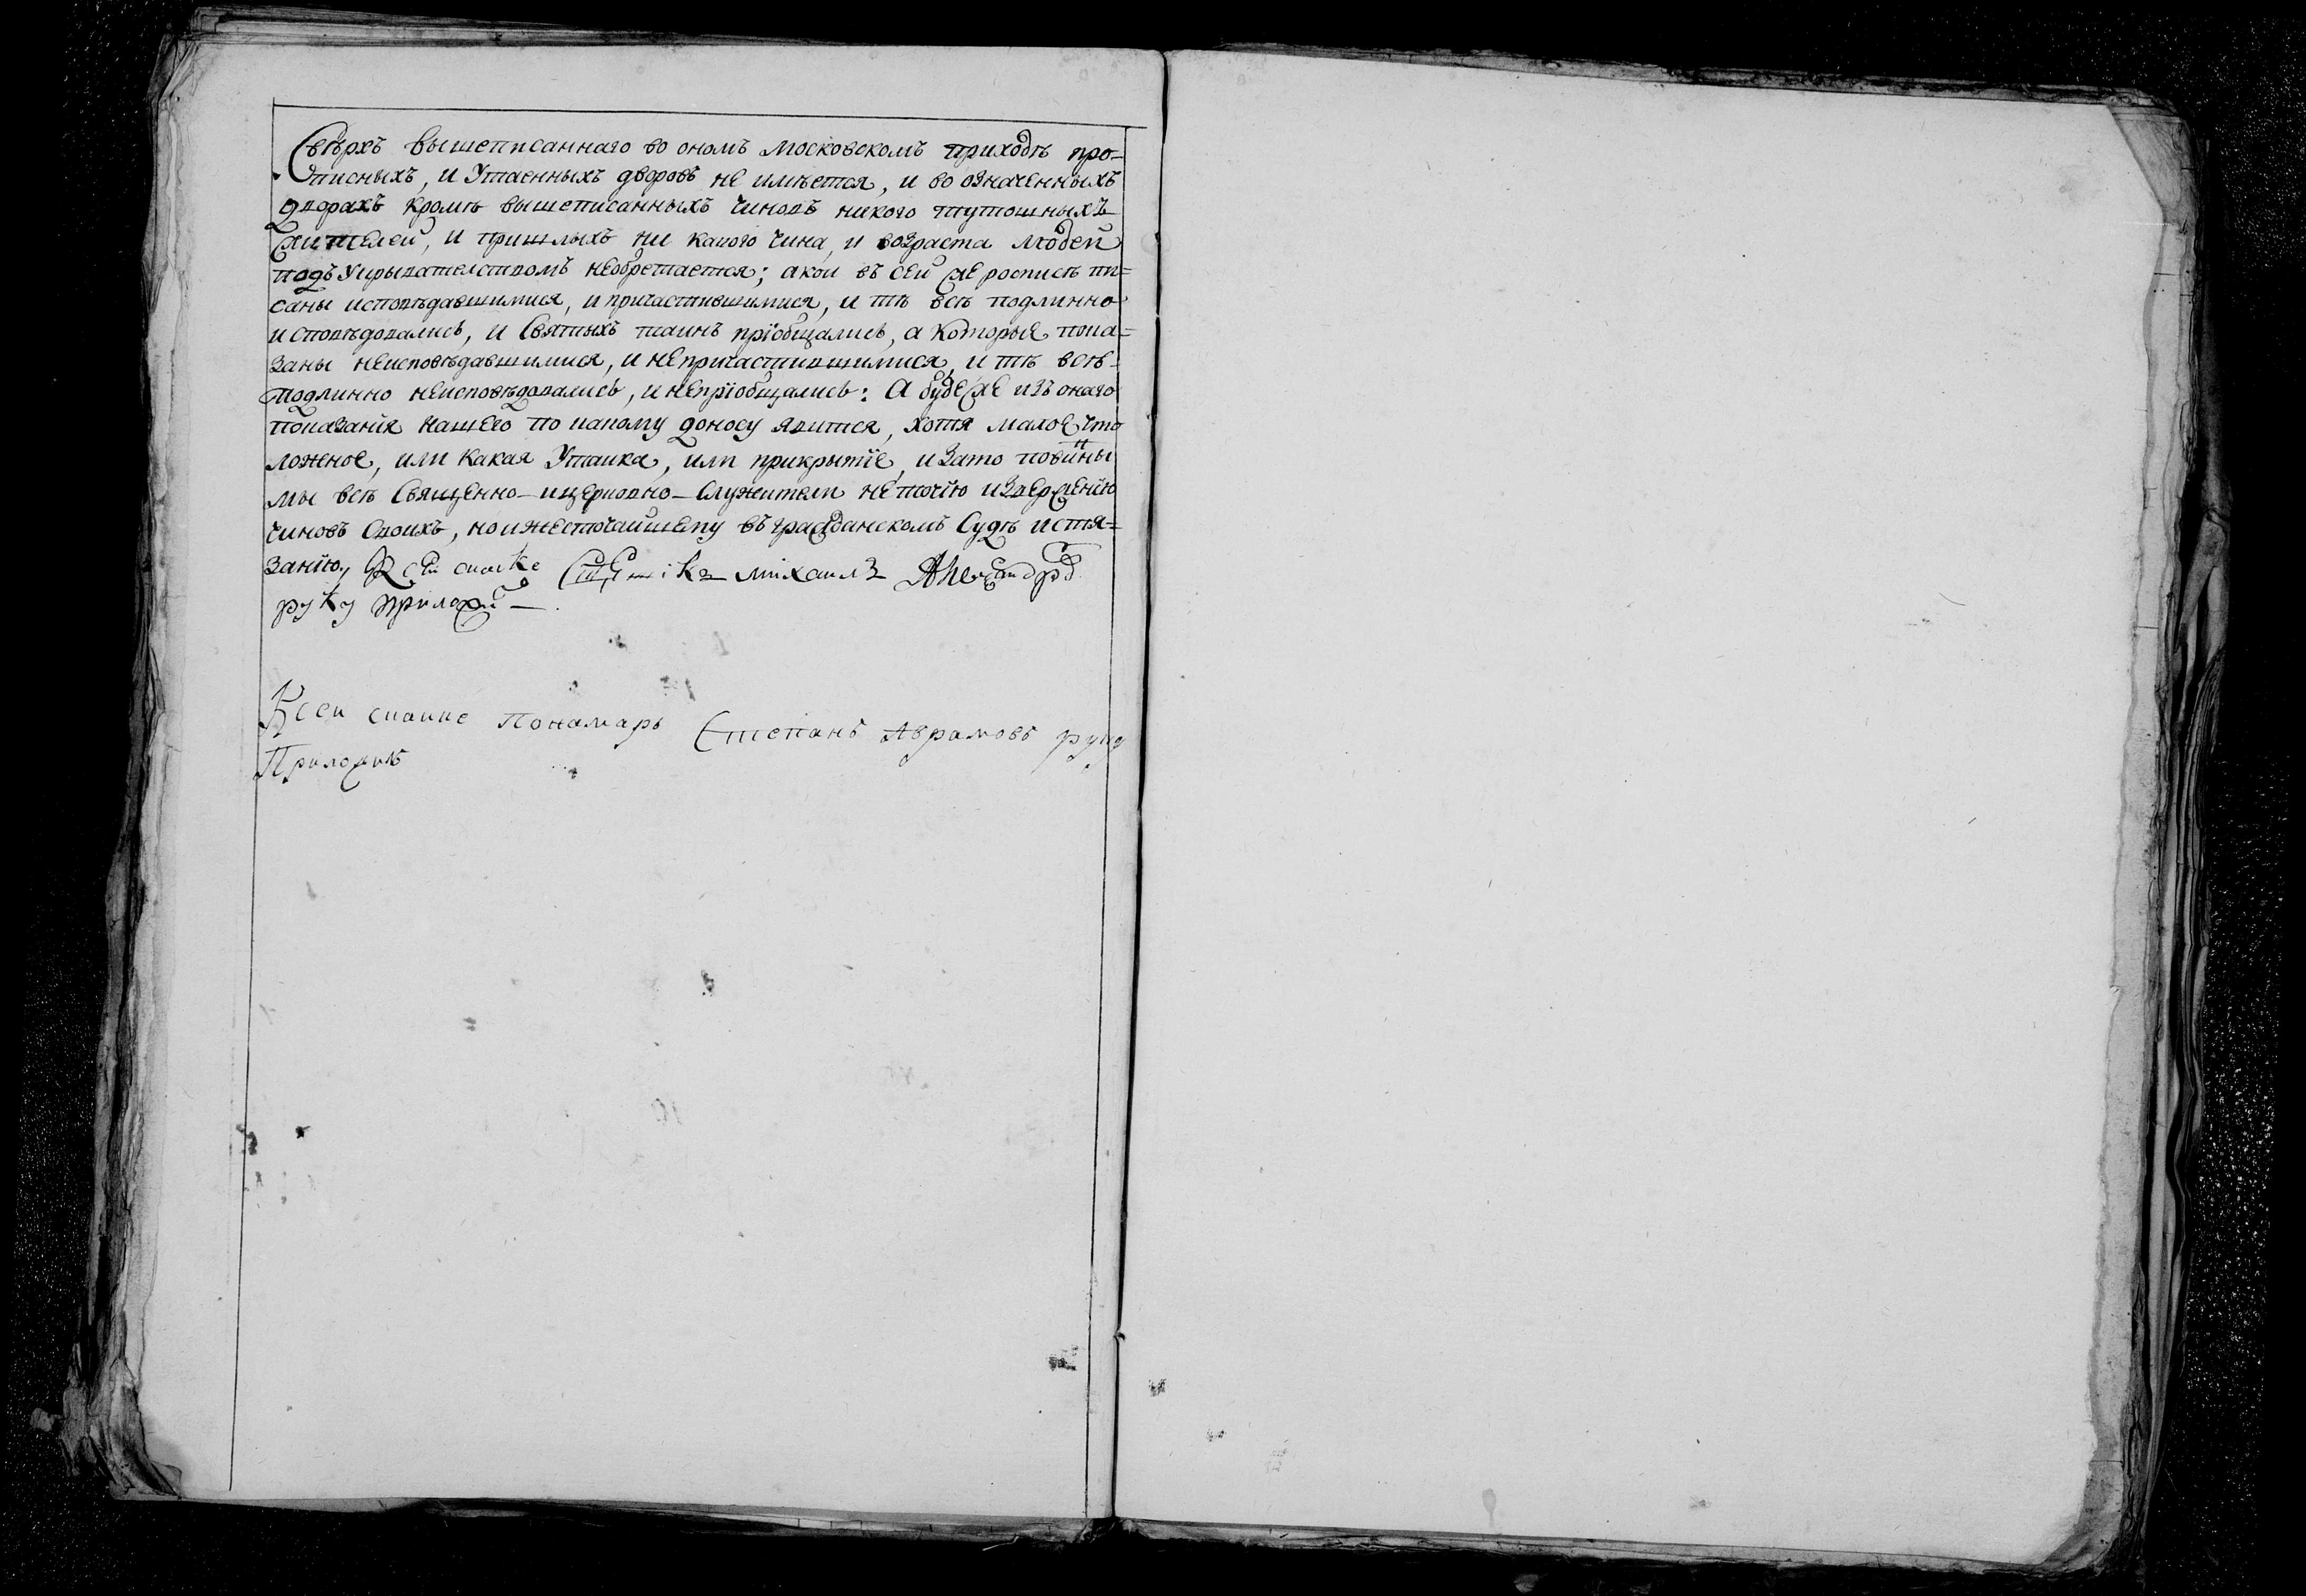 Свѣрхъ вышеписаннаго во ономъ московскомъ приходѣ про-
писныхъ, и утаенныхъ дворовъ не имѣется, и во означенныхъ
дворахъ кромѣ вышеписанныхъ чиновъ никого тутошныхъ
жителей, и пришлыхъ ни какого чина, и возраста людей
подъ укрывателствомъ необретается; а кои въ сеи же росписѣ пи=
саны исповѣдавшимися, и причастившимися, и тѣ всѣ подлинно
исповѣдовались, и Святыхъ таинъ прїобщались, а которые пока=
заны неисповѣдавшимися, и непричастившимися, и тѣ всѣ-
подлинно неисповѣдовались, и непрїобщались: А будеже изъ онаго
показанїя нашего по какому доносу явится, хотя малое что
ложное, или какая утаика, или прикрытїе, и за то повинны
мы всѣ Священно-ицерковно-служители неточїю извержению
чиновъ своихъ, но и жесточаишему въ гражданскомъ Судѣ истя=
занїю, К сей скаске михаилъ
руку приложил
К сеи скаике Пономарь Степанъ Аврамовъ руку
Приложилъ